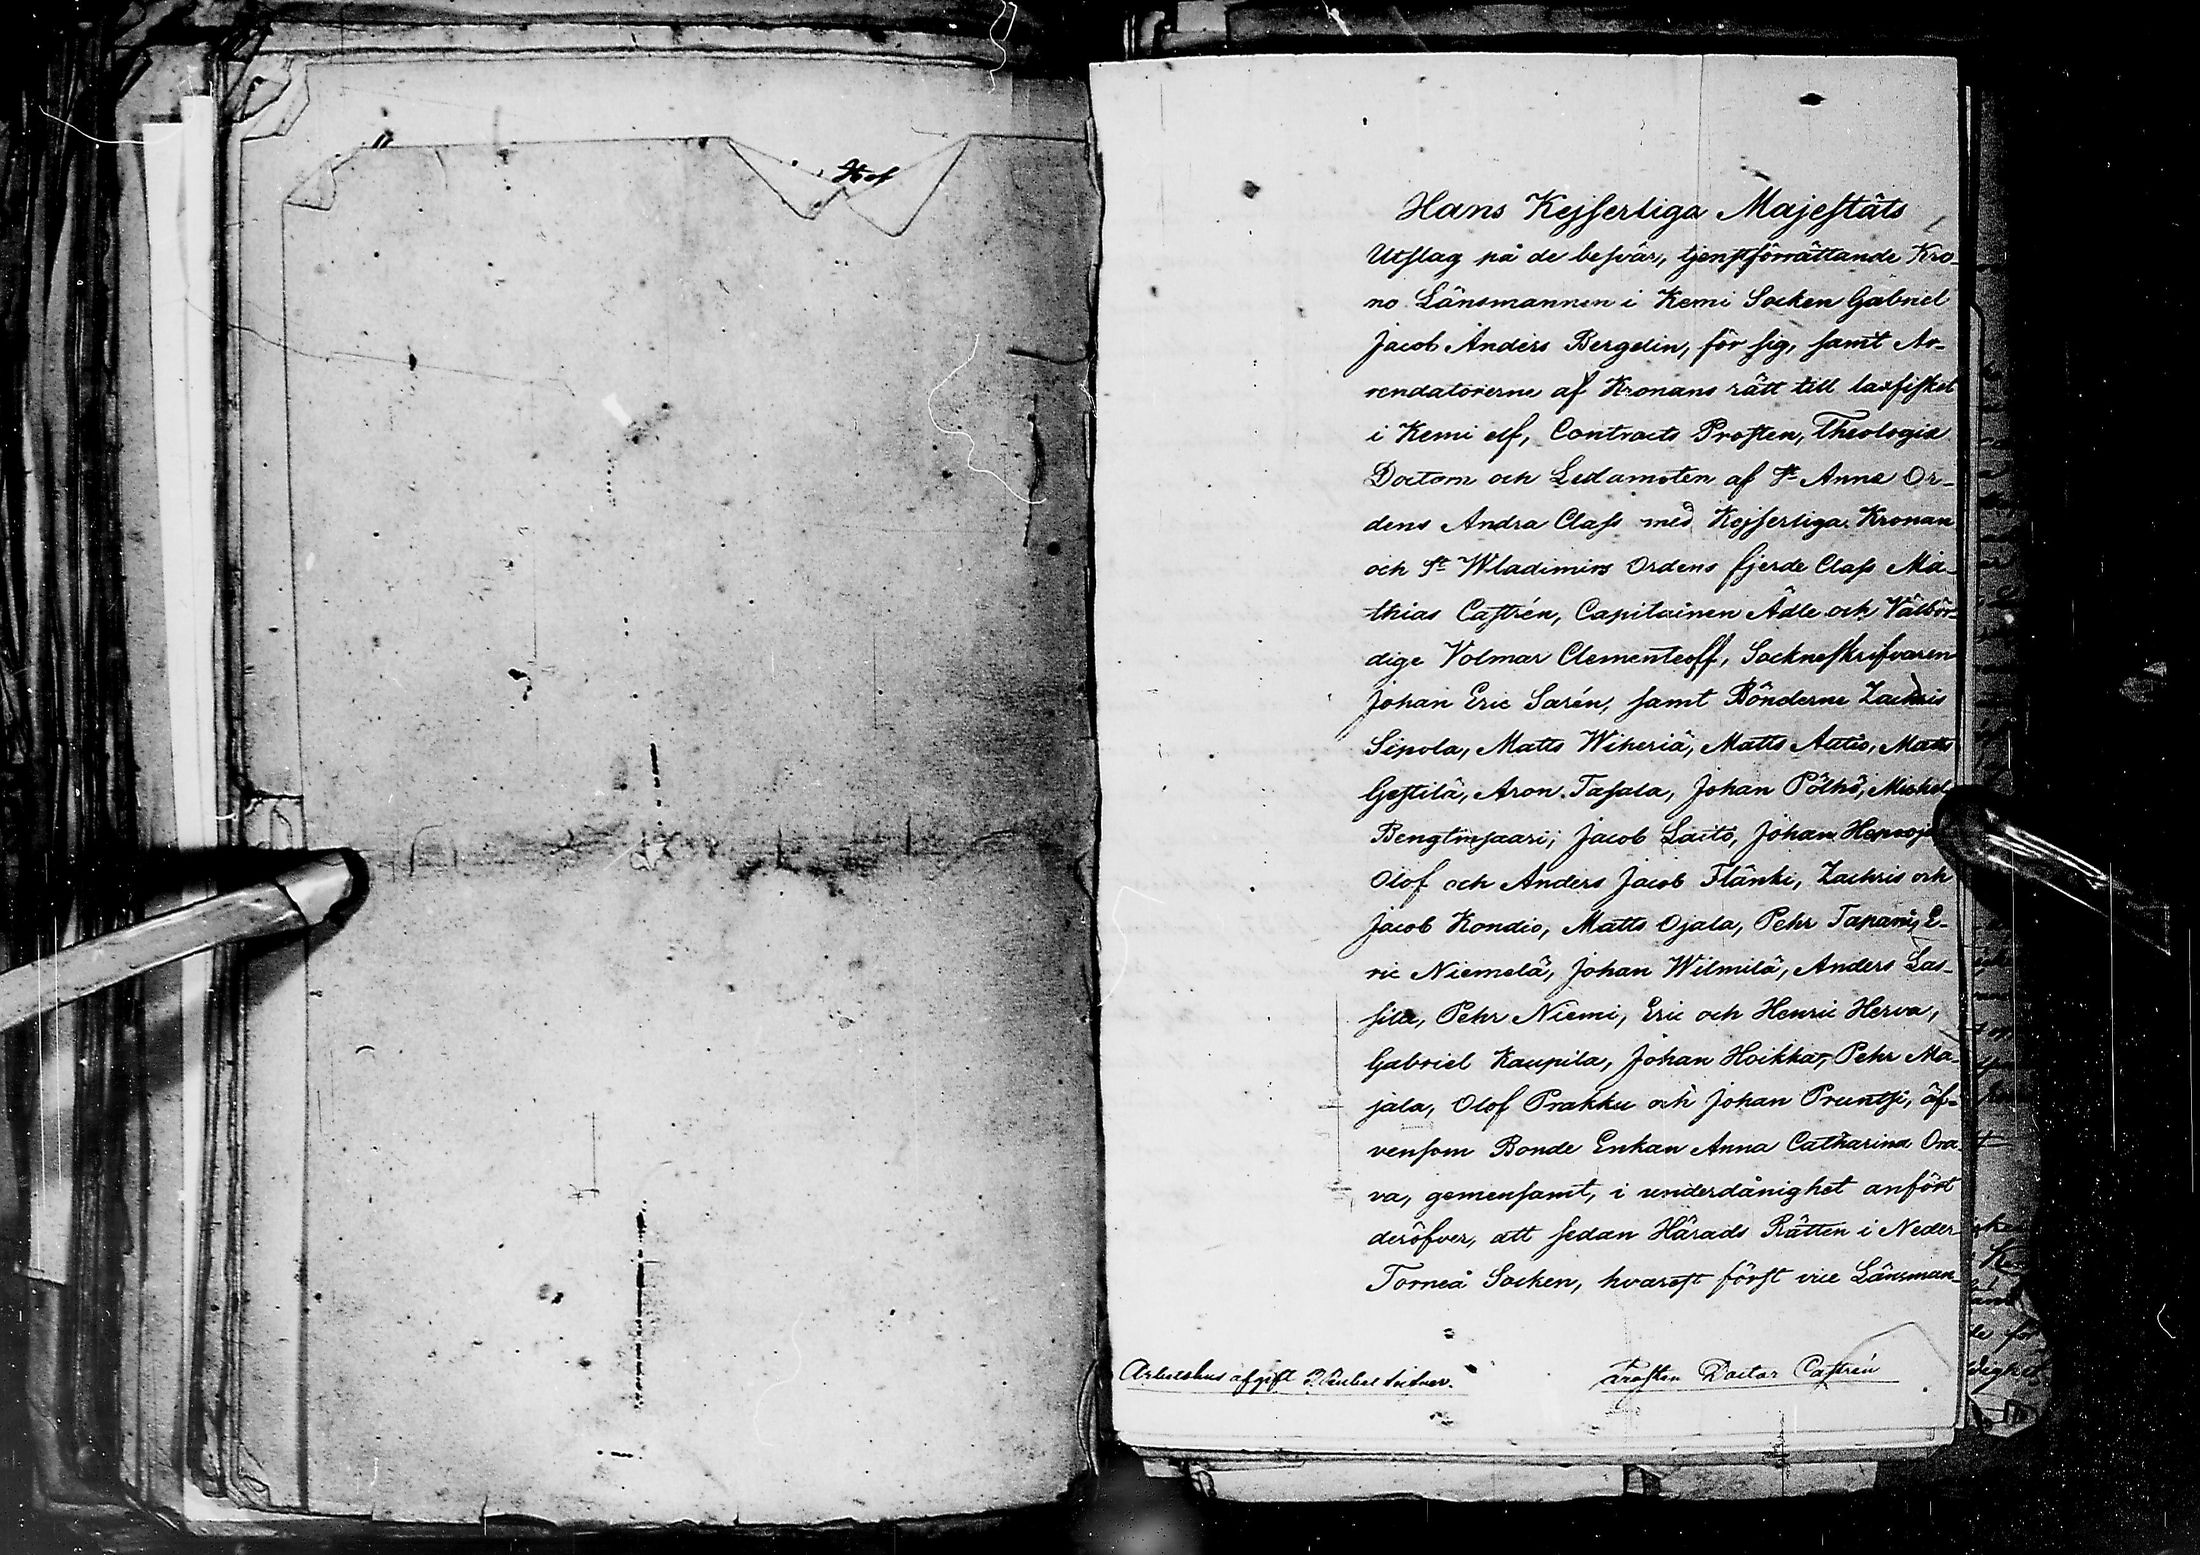 Hans Kejserliga Majestäts
Utslag på de besvär, tjenstförrättande Kro-
no Länsmannen i Kemi Socken Gabriel
Jacob Anders Bergelin, för sig, samt Ar-
rendatorerne af Kronans rätt till laxfisket
i Kemi elf, Contracts Prosten, Theologiæ
Doctorn och Ledamoten af St Annæ Or-
dens Andra Class med Kejserliga Kronan
och St Wladimirs Ordens fjerde Class Ma-
thias Castrén, Capitainen Ädle och Välbör-
dige Volmar Clementeoff, Sockneskrifvaren
Johan Eric Sarén, samt Bönderne Zachris
Sipola, Matts Wiheriä, Matts Autio, Matts
Gestilä, Aron Tasala, Johan Pölhö, Michel
Bengtinsaari, Jacob Laito, Johan
Olof och Anders Jacob Flänki, Zachris och
Jacob Kondio, Matts Ojala, Pehr Tapani, E-
ric Niemelä, Johan Wilmilä, Anders Las-
sila, Pehr Niemi, Eric och Henric Herva,
Gabriel Kaupila, Johan Hoikka, Pehr Ma-
jala, Olof Prakku och Johan Pruntsi, äf-
vensom Bonde Enkan Anna Catharina Ora-
va, gemensamt, i underdånighet anfört
deröfver, att sedan Härads Rätten i Neder
Torneå Socken, hvarest först vice Länsman-
Arbetshus afgift Rubel Silfver.
Prosten Doctor Castrén